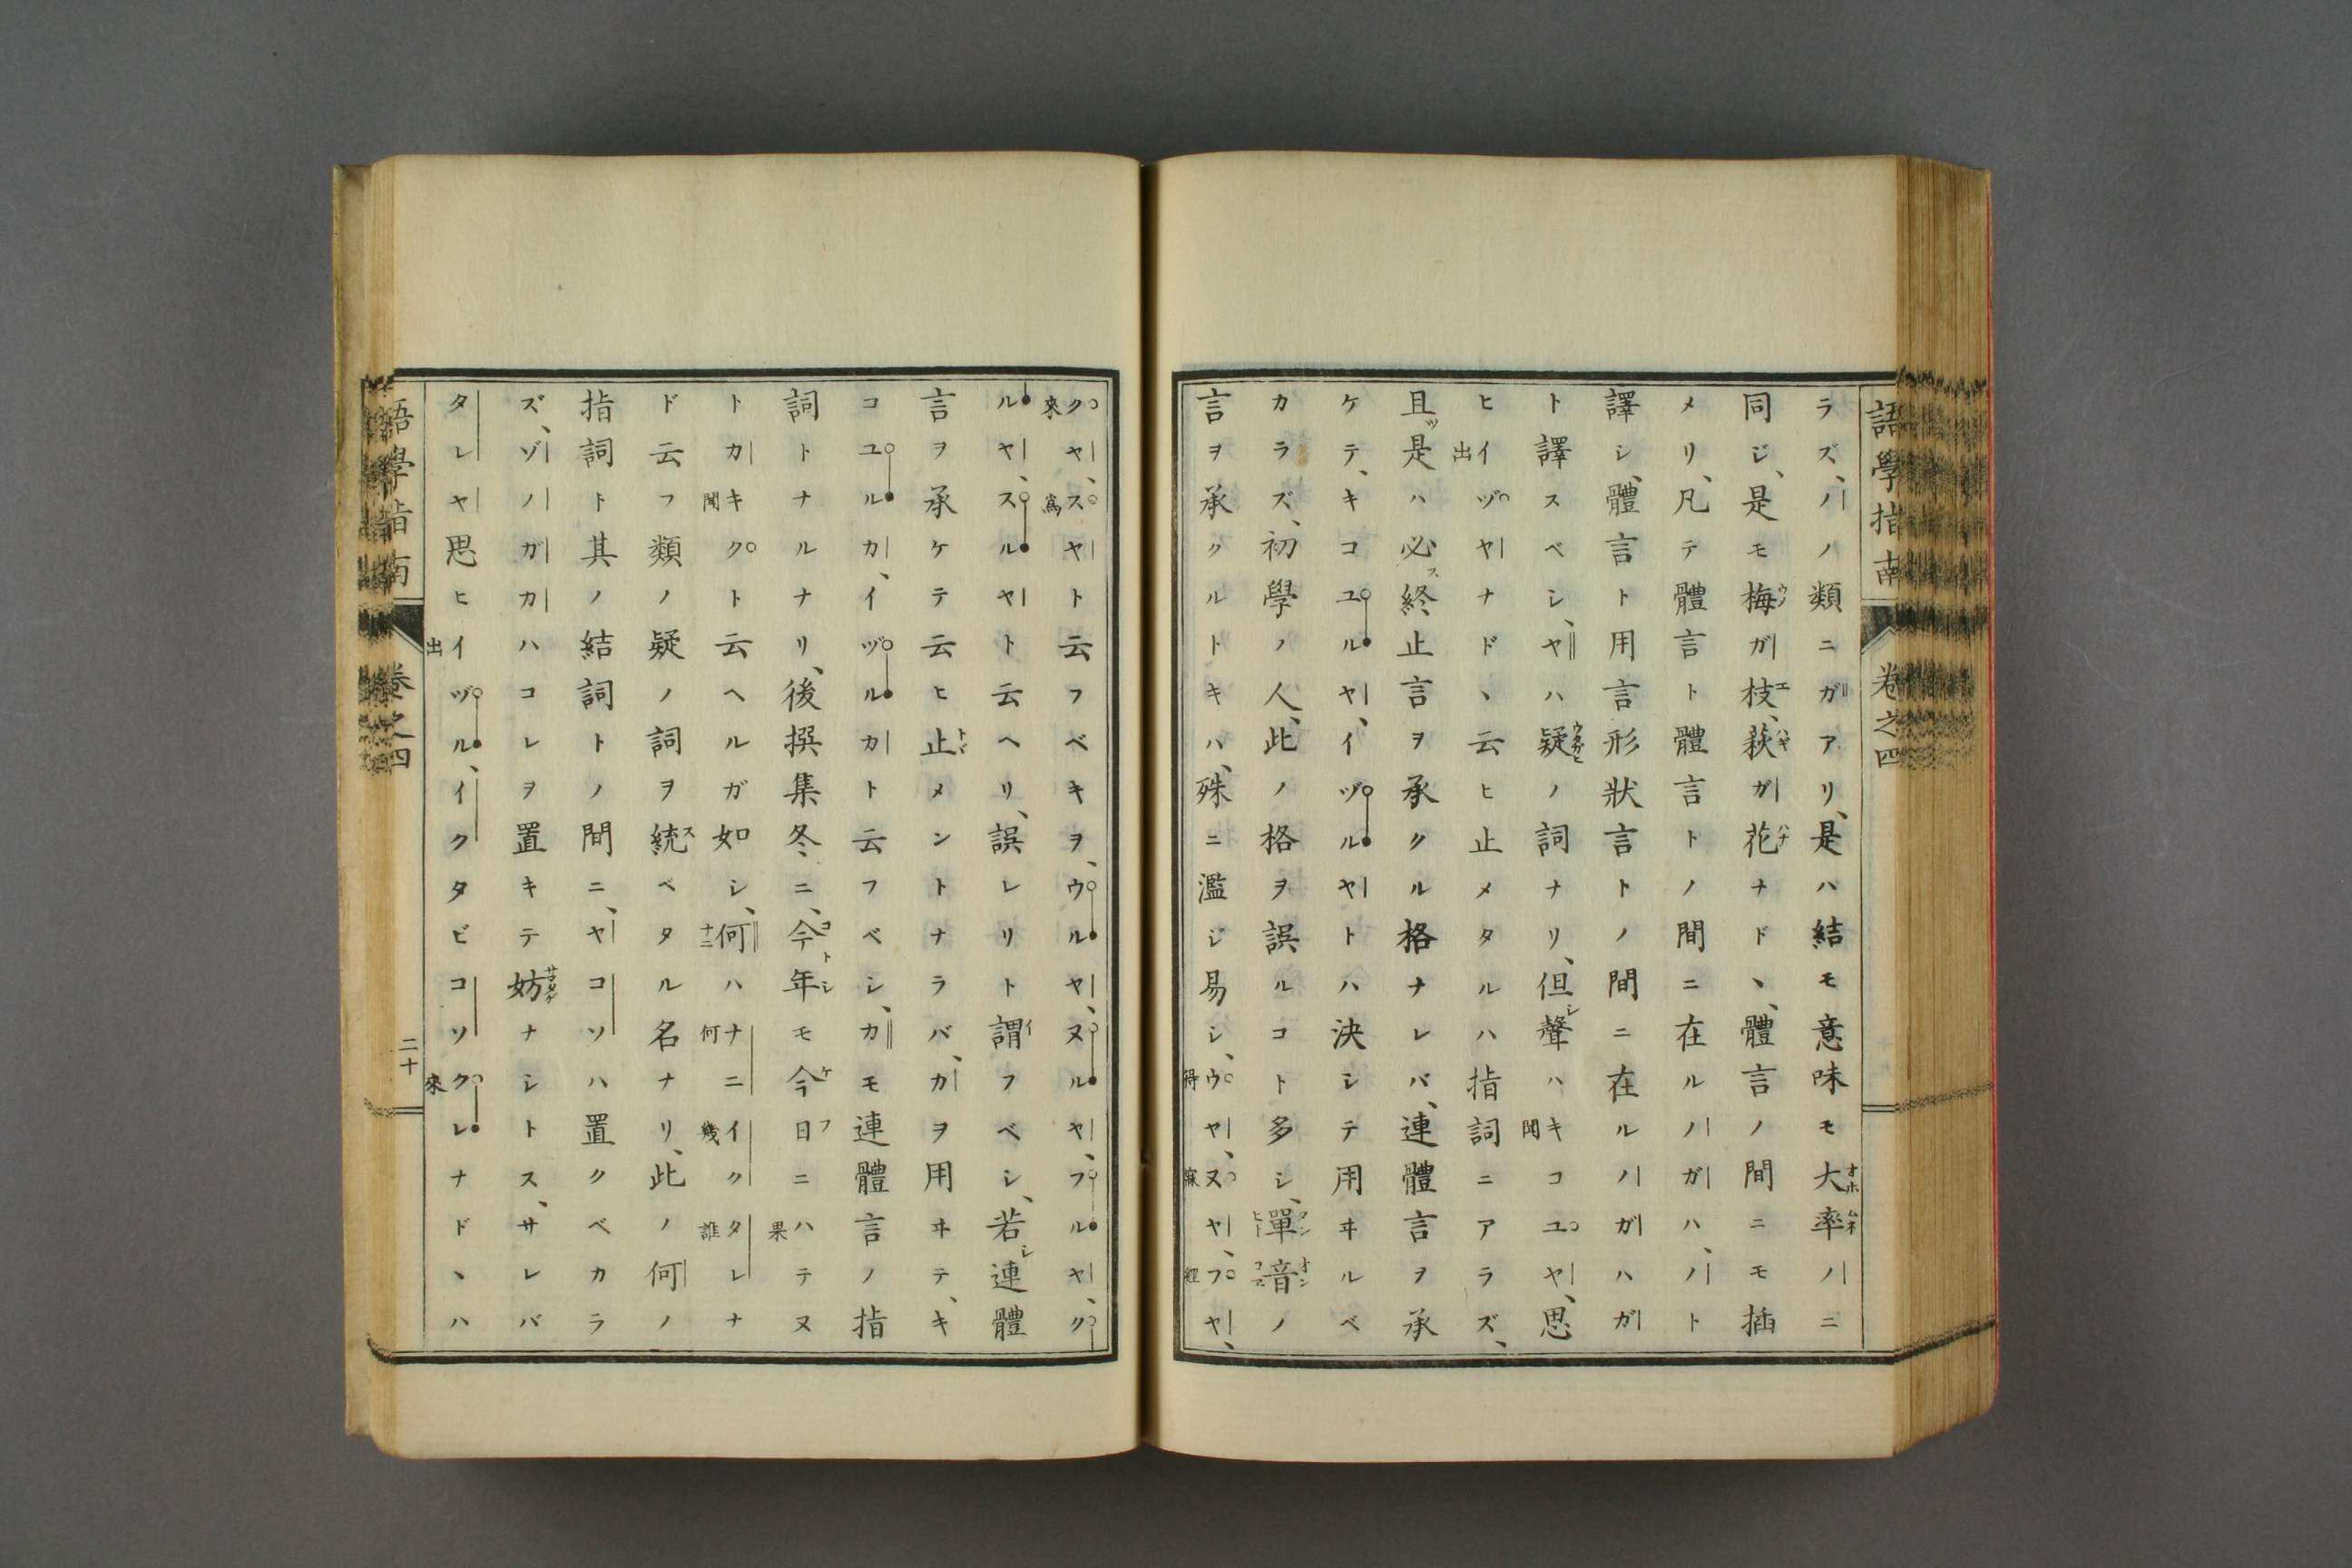 語學指南 卷之四
ラズ、ノノ類ニガアリ、是ハ結モ意味モ大率ノニ
同ジ、是モ梅ガ枝、萩ガ花ナドヽ、體言ノ間ニモ插
メリ、凡テ體言ト體言トノ間ニ在ルノガハ、ノト
譯シ、體言ト用言形狀言トノ間ニ在ルノガハガ
ト譯スベシ、ヤハ疑ノ詞ナリ、但聲ハキコユヤ、思
ヒイヅヤナドヽ云ヒ止メタルハ指詞ニアラズ、
且是ハ必終止言ヲ承クル格ナレバ、連體言ヲ承
ケテ、キコユルヤ、イヅルヤトハ決シテ用ヰルベ
カラズ、初學ノ人、此ノ格ヲ誤ルコト多シ、單音ノ
言ヲ承クルトキハ、殊ニ濫ジ易シ、ウヤ、ヌヤ、フヤ、
クヤ、スヤト云フベキヲ、ウルヤ、ヌルヤ、フルヤ、ク
ルヤ、スルヤト云ヘリ、誤レリト謂フベシ、若連體
言ヲ承ケテ云ヒ止メントナラバ、カヲ用ヰテ、キ
コユルカ、イヅルカト云フベシ、カモ連體言ノ指
詞トナルナリ、後撰集冬ニ、今年モ今日ニハテヌ
トカキクト云ヘルガ如シ、何ハナニイクタレナ
ド云フ類ノ疑ノ詞ヲ統ベタル名ナリ、此ノ何ノ
指詞ト其ノ結詞トノ間ニ、ヤコソハ置クベカラ
ズ、ゾノガカハコレヲ置キテ妨ナシトス、サレバ
タレヤ思ヒイヅル、イクタビコソクレナドヽハ
語學指南 卷之四 二十